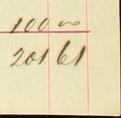 100 00
201 61